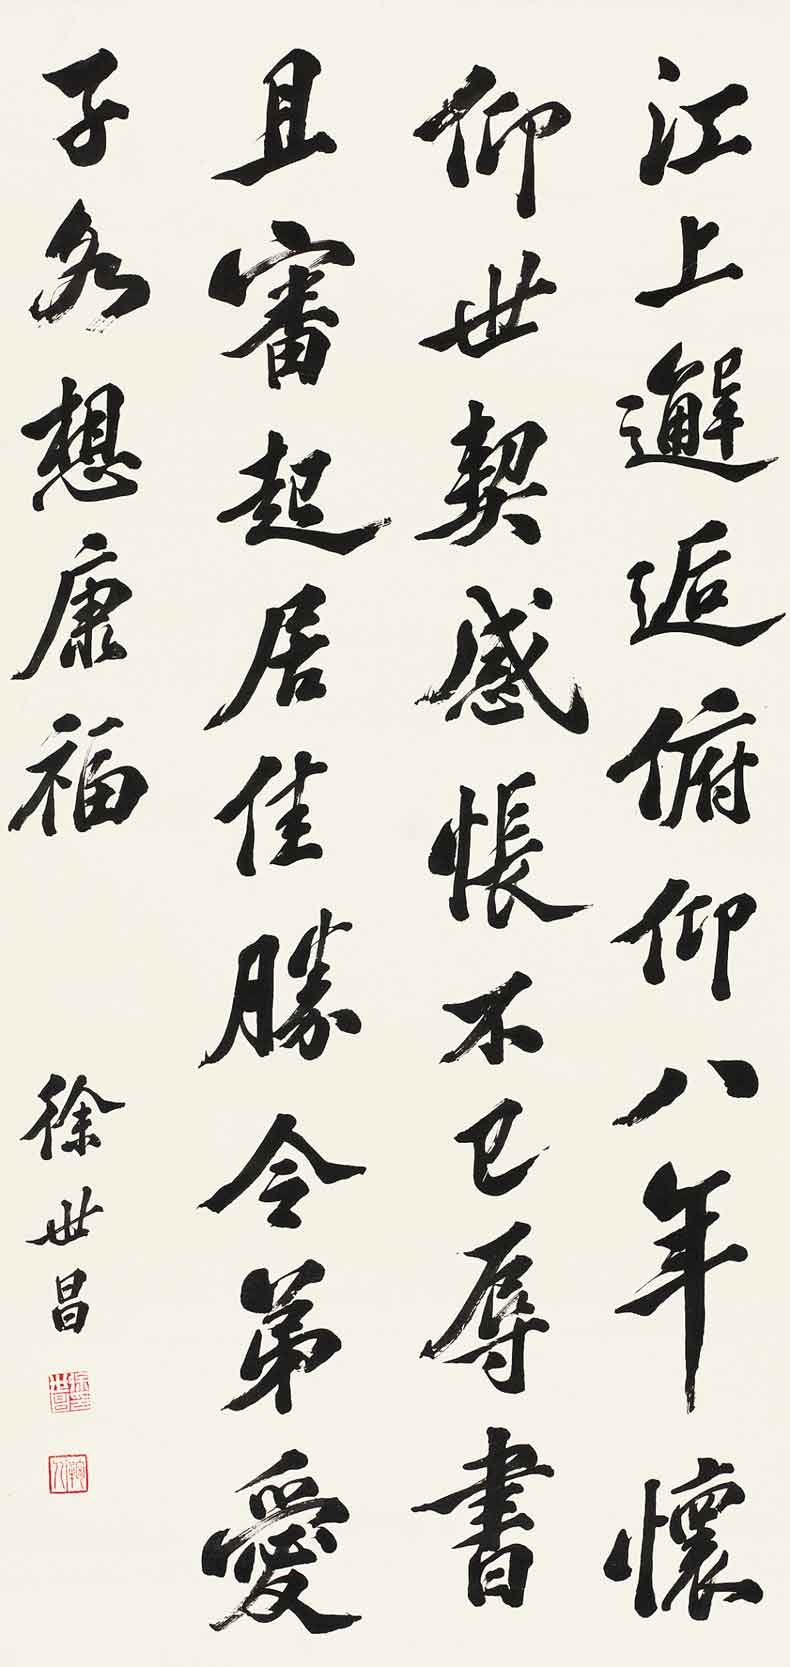 江上邂逅俯仰八年懷
仰世契感悵不已辱書
且審起居佳勝令弟愛
子各想康福
徐世昌